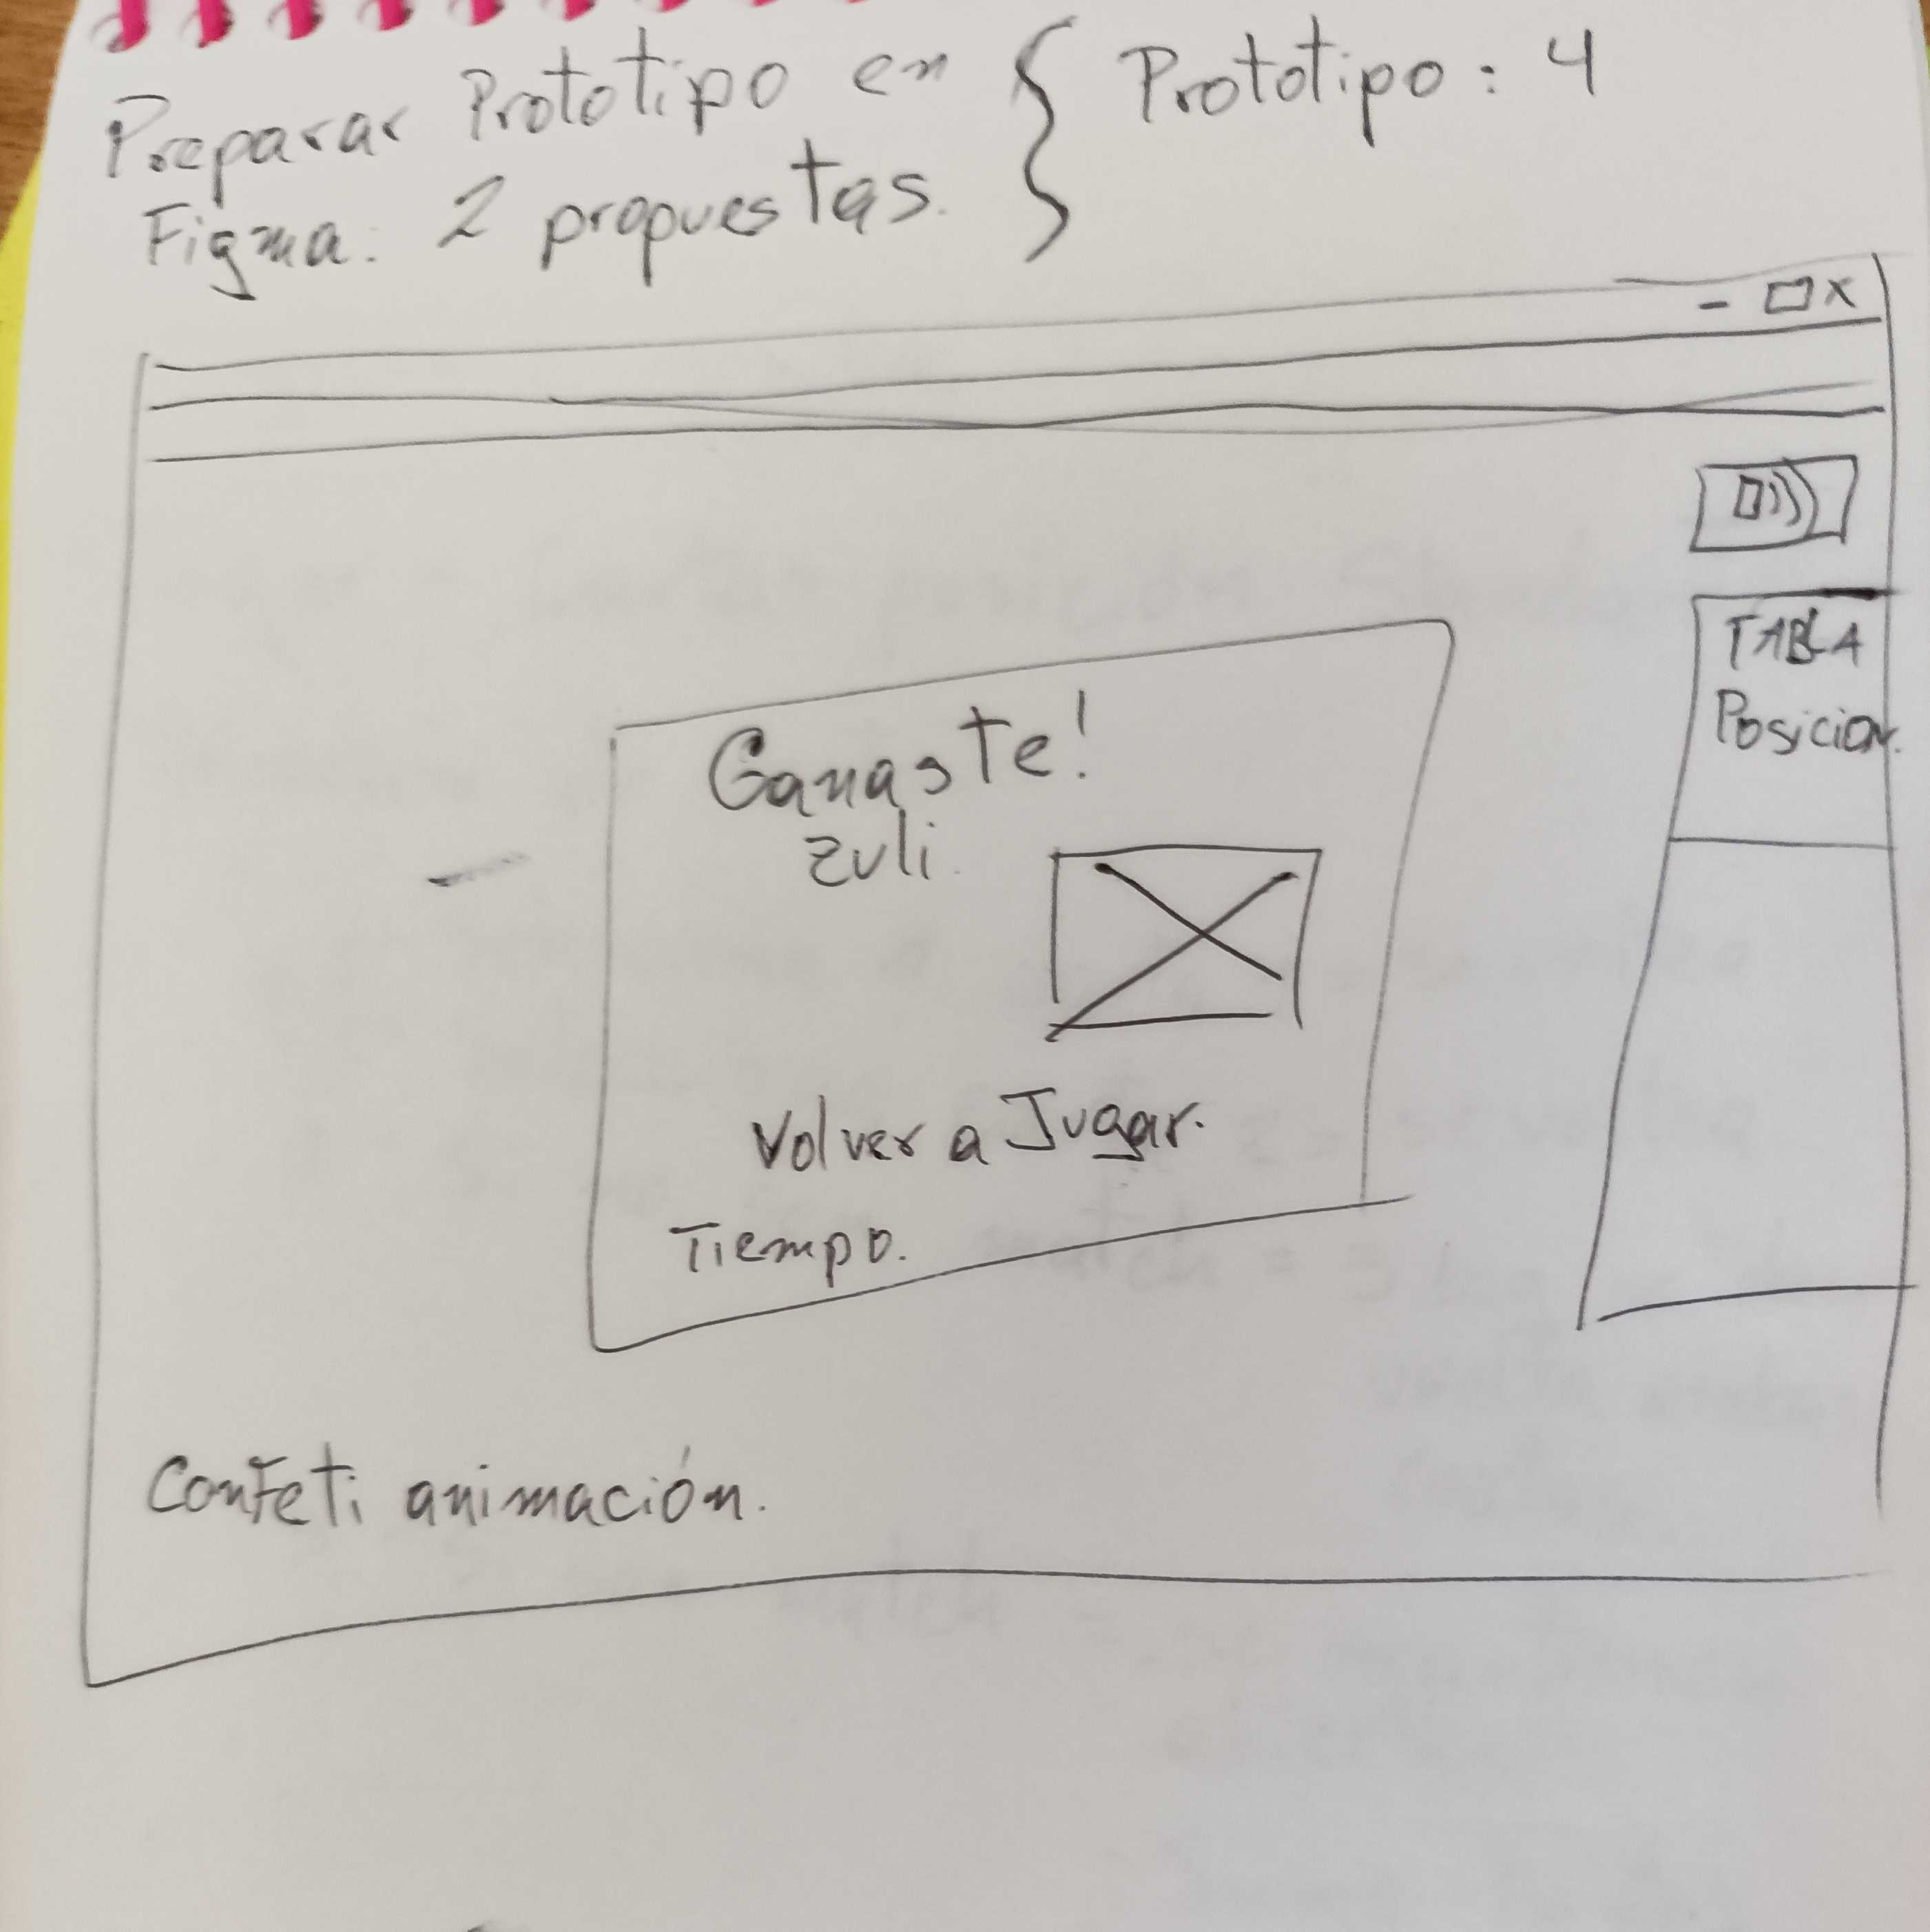 Preparar Prototipo en
Figma: 2 propuestas.
Prototipo: 4
- □ X
TABLA
Posicion.
Ganaste!
Zuli.
Volver a Jugar.
Tiempo.
Confeti animación.